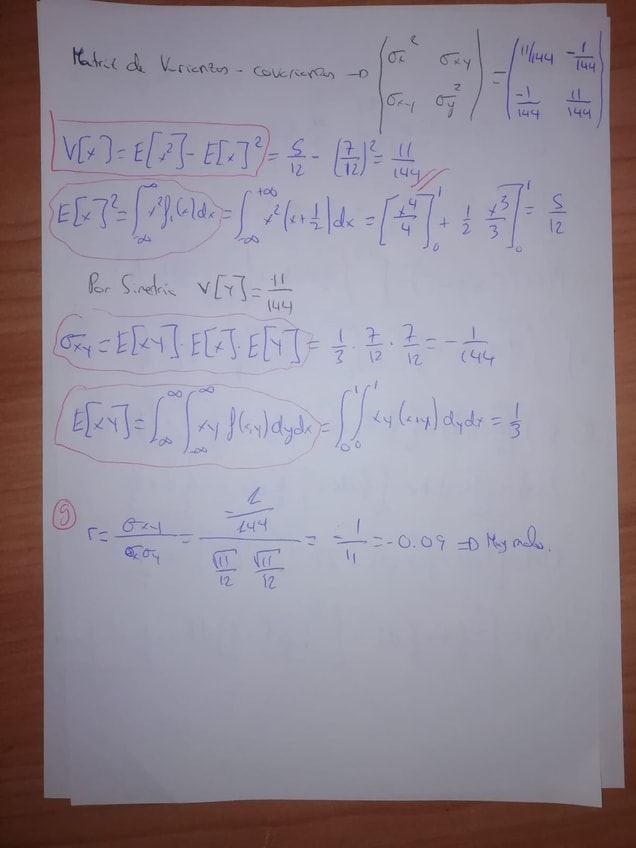 Matriz de Varianzas - covarianzas → (σx² σxy σxy σy²) = (11/144 -1/144 -1/144 11/144)
V[x] = E[x²] - E[x]² = 5/12 - (7/12)² = 11/144
E[x]² = ∫_∞^∞ x² f₁(x) dx = ∫_-∞^+∞ x² (x + 1/2) dx = [x⁴/4]₀¹ + 1/2 x³/3]₀¹ = 5/12
Por Simetria V[Y] = 11/144
σxy = E[xY] · E[x] · E[Y] = 1/3 · 7/12 · 7/12 = - 1/144
E[xY] = ∫_∞^∞ ∫_-∞^∞ xy f(x,y) dy dx = ∫₀¹ ∫₀¹ xy (x+y) dy dx = 1/3
g) r = σxy / σxσy = (-1/144) / (√11/12 √11/12) = -1/11 = -0.09 ⇒ Muy malo.